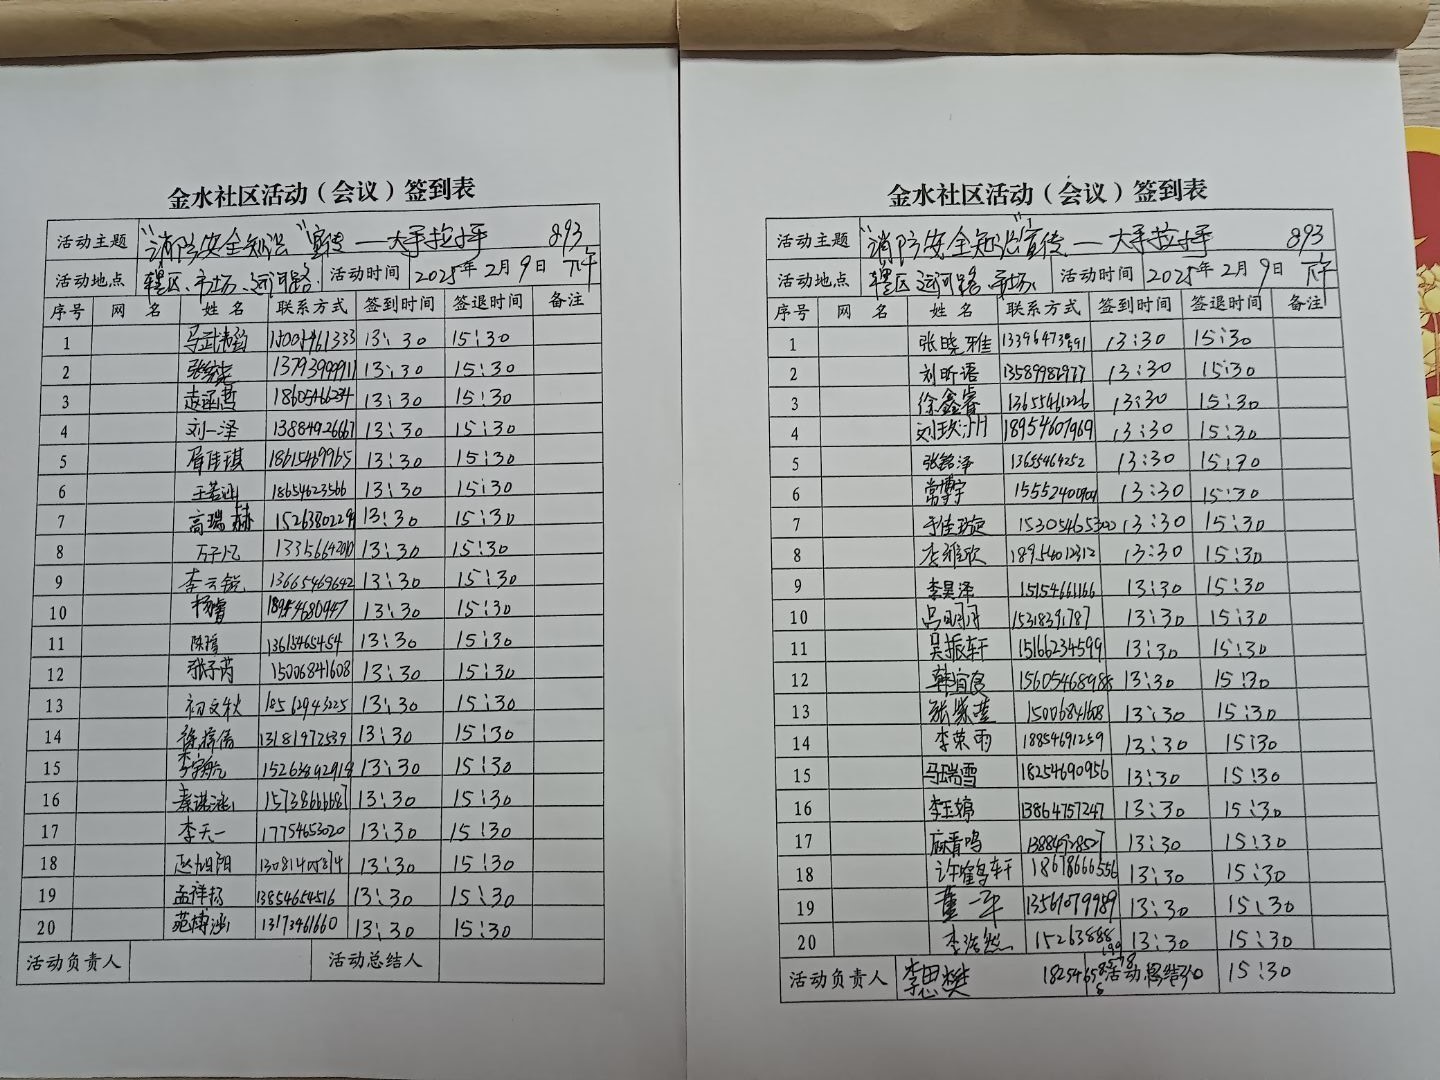 金水社区活动（会议）签到表
活动主题 "消防安全知识"宣传—大手拉小手 893
活动地点 辖区、市场、运河路. 活动时间 2025年2月9日 下午
序号 网 名 姓 名 联系方式 签到时间 签退时间 备注
1 13:30 15:30
2 13793999911 13:30 15:30
3 赵函茜 13:30 15:30
4 刘一泽 13884926667 13:30 15:30
5 佳琪 18615469965 13:30 15:30
6 王若涵 18654623566 13:30 15:30
7 高瑞赫 13:30 15:30
8 万子凡 13:30 15:30
9 李云锐 13665469642 13:30 15:30
10 杨睿 13:30 15:30
11 陈瑄 13:30 15:30
12 张子芮 15006841608 13:30 15:30
13 初文秋 18562943225 13:30 15:30
14 13181972539 13:30 15:30
15 李宇航 13:30 15:30
16 秦诺涵 13:30 15:30
17 李天一 17754653020 13:30 15:30
18 赵旭阳 13:30 15:30
19 孟祥扬 13854654516 13:30 15:30
20 范博涵 13173461660 13:30 15:30
活动负责人 活动总结人
金水社区活动（会议）签到表
活动主题 "消防安全知识"宣传—大手拉小手 893
活动地点 辖区运河路.市场. 活动时间 2025年2月9日 下午
序号 网 名 姓 名 联系方式 签到时间 签退时间 备注
1 张晓雅 13:30 15:30
2 刘昕语 13:30 15:30
3 徐鑫睿 13655461226 13:30 15:30
4 18954607969 13:30 15:30
5 张铭泽 13655464252 13:30 15:30
6 常博宇 13:30 15:30
7 于佳琁 15305465300 13:30 15:30
8 李雅欣 18954012312 13:30 15:30
9 李昊泽 15154661166 13:30 15:30
10 吕明月 15318391787 13:30 15:30
11 吴振轩 15166234599 13:30 15:30
12 韩宜良 15605468985 13:30 15:30
13 张紫莹 15006841608 13:30 15:30
14 李荣雨 18854691259 13:30 15:30
15 马瑞雪 18254690956 13:30 15:30
16 李玉婷 13864757247 13:30 15:30
17 麻晋鸣 13884928507 13:30 15:30
18 许鹤轩 18678666556 13:30 15:30
19 董一平 13561079989 13:30 15:30
20 李浩然 15263888199 13:30 15:30
活动负责人 李思樊 活动总结人 15:30